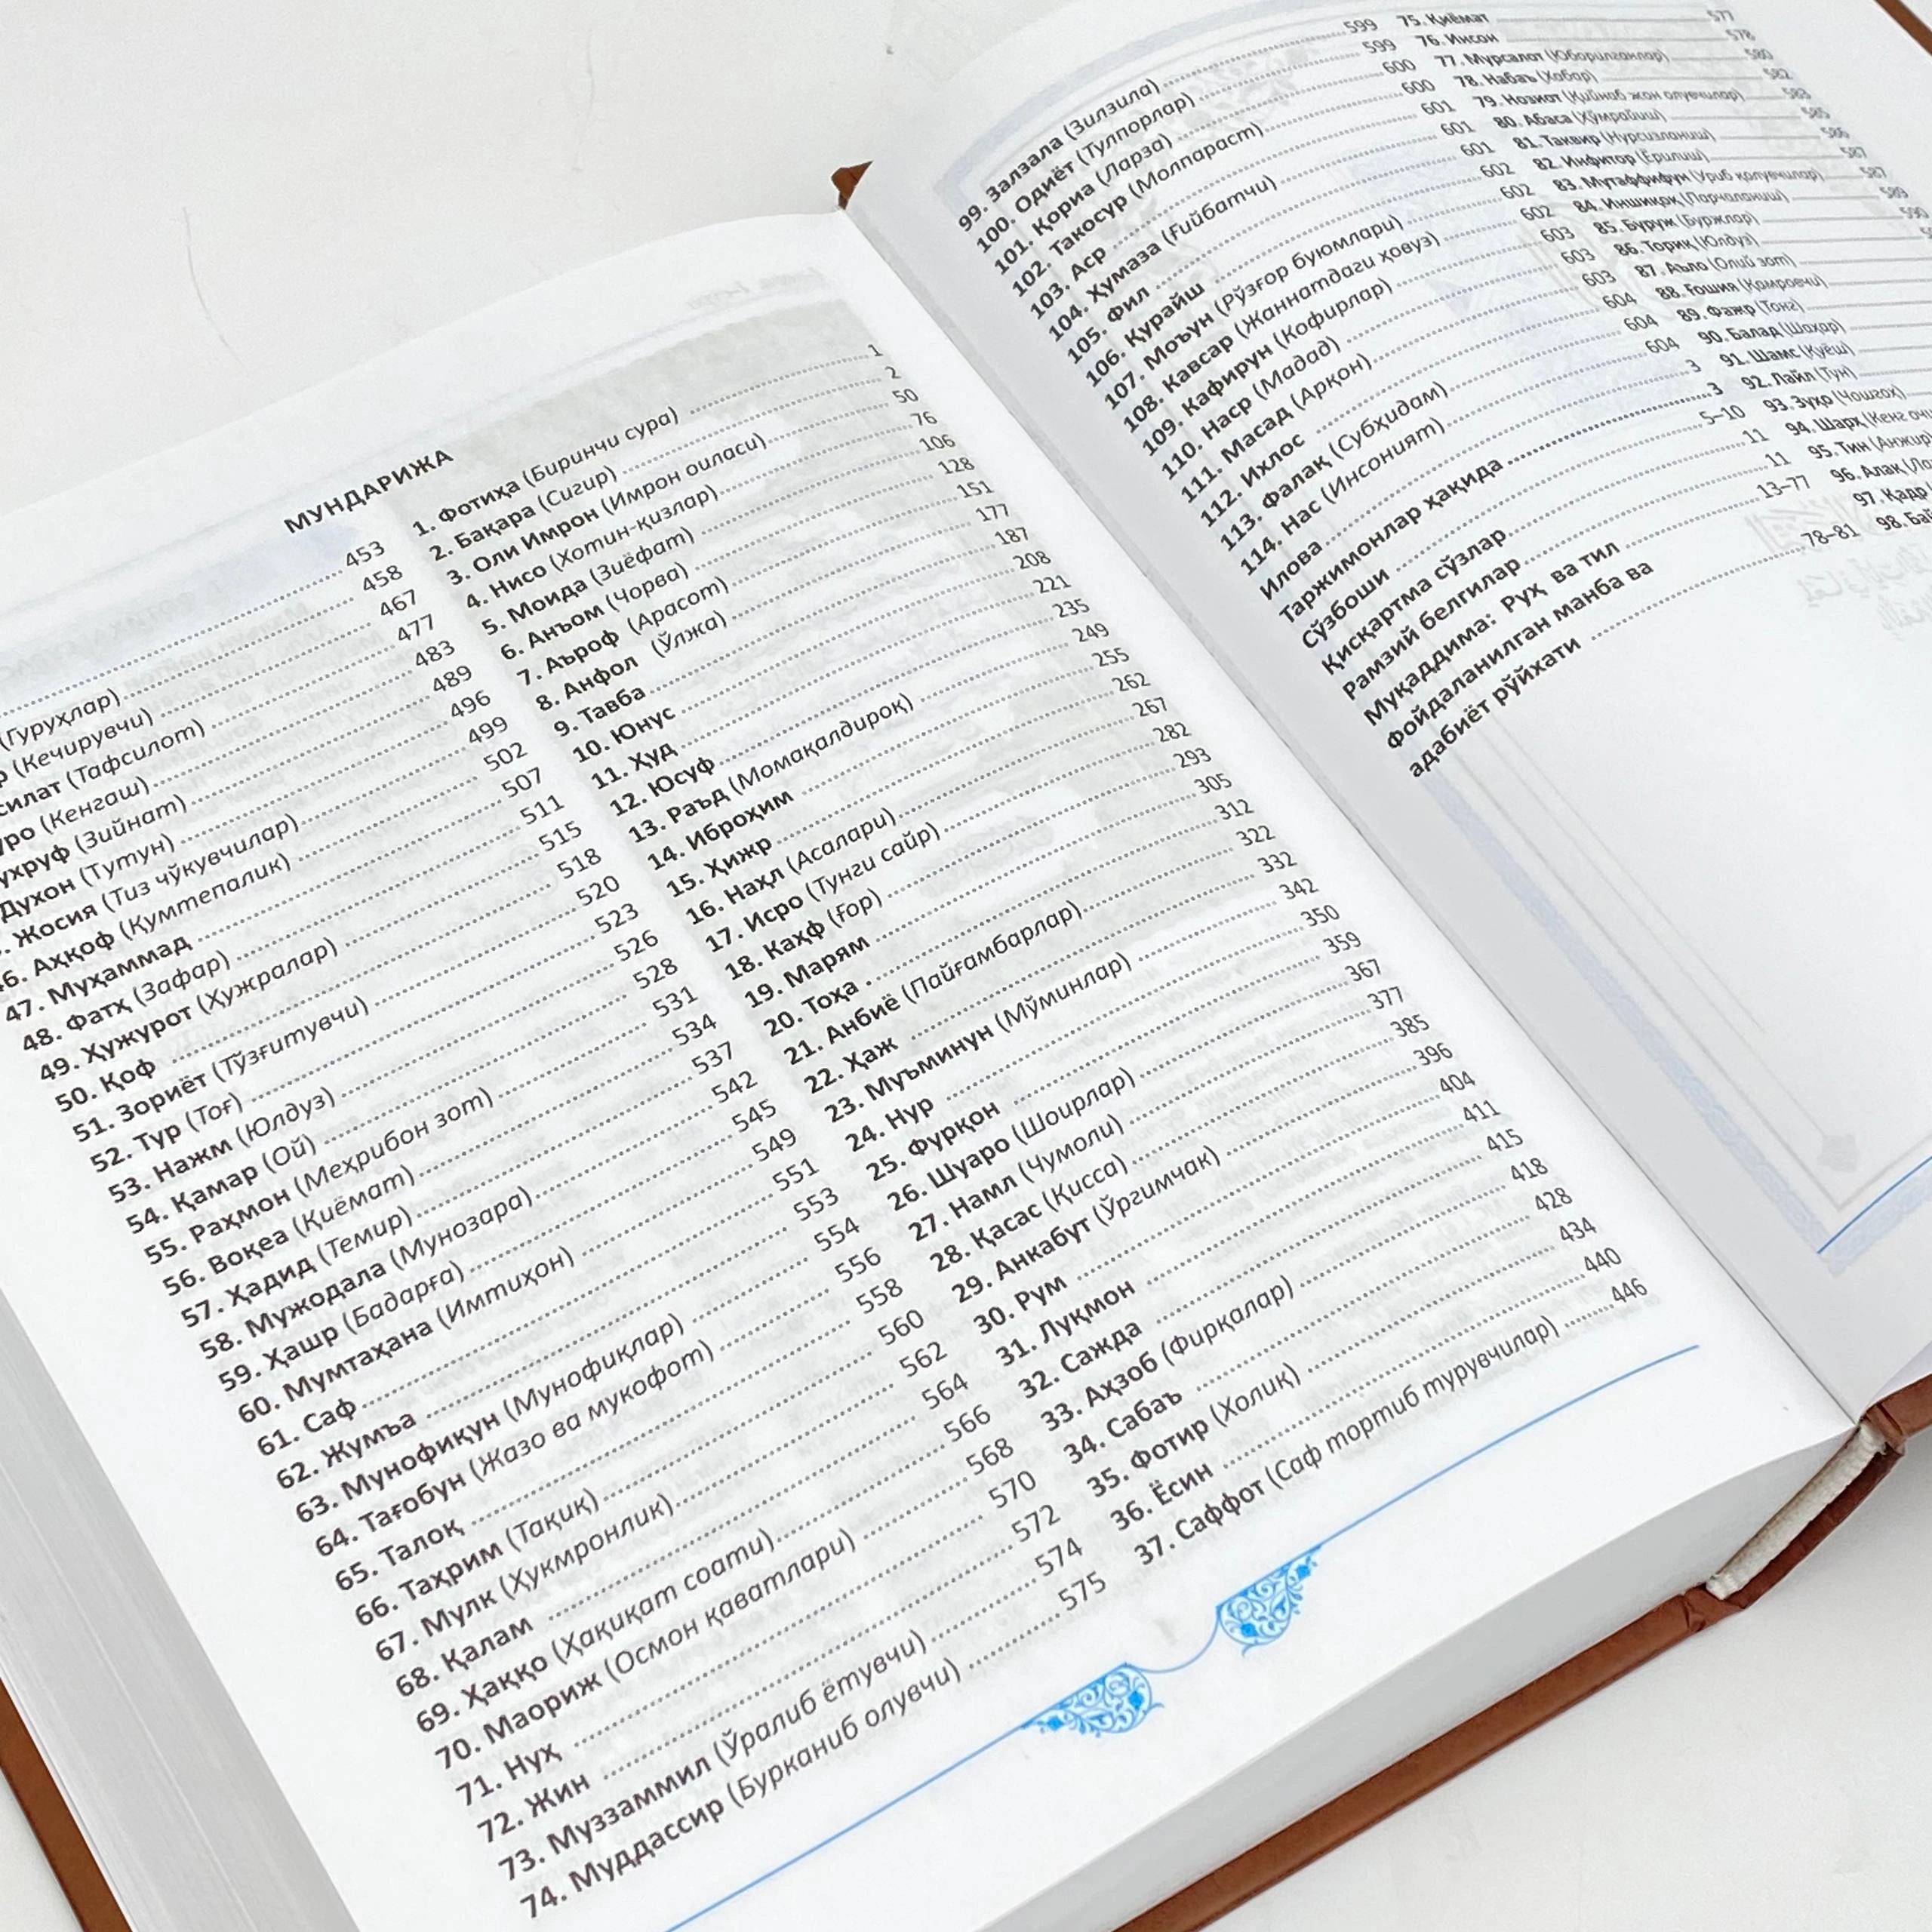 МУНДАРИЖА
1. Фотиҳа (Биринчи сура) 1
2. Бақара (Сигир) 2
3. Оли Имрон (Имрон оиласи) 50
4. Нисо (Хотин-қизлар) 76
5. Моида (Зиёфат) 106
6. Анъом (Чорва) 128
7. Аъроф (Арасот) 151
8. Анфол (Ўлжа) 177
9. Тавба 187
10. Юнус 208
11. Ҳуд 221
12. Юсуф 235
13. Раъд (Момақалдироқ) 249
14. Иброҳим 255
15. Ҳижр 262
16. Наҳл (Асалари) 267
17. Исро (Тунги сайр) 282
18. Каҳф (ғор) 293
19. Марям 305
20. Тоҳа 312
21. Анбиё (Пайғамбарлар) 322
22. Ҳаж 332
23. Муъминун (Мўминлар) 342
24. Нур 350
25. Фурқон 359
26. Шуаро (Шоирлар) 367
27. Намл (Чумоли) 377
28. Қасас (Қисса) 385
29. Анкабут (Ўргимчак) 396
30. Рум 404
31. Луқмон 411
32. Сажда 415
33. Аҳзоб (Фирқалар) 418
34. Сабаъ 428
35. Фотир (Холиқ) 434
36. Ёсин 440
37. Саффот (Саф тортиб турувчилар) 446
453
(Гуруҳлар) 458
р (Кечирувчи) 467
силат (Тафсилот) 477
уро (Кенгаш) 483
ухруф (Зийнат) 489
Духон (Тутун) 496
. Жосия (Тиз чўкувчилар) 499
46. Аҳқоф (Қумтепалик) 502
47. Муҳаммад 507
48. Фатҳ (Зафар) 511
49. Ҳужурот (Ҳужралар) 515
50. Қоф 518
51. Зориёт (Тўзғитувчи) 520
52. Тур (Тоғ) 523
53. Нажм (Юлдуз) 526
54. Қамар (Ой) 528
55. Раҳмон (Меҳрибон зот) 531
56. Воқеа (Қиёмат) 534
57. Ҳадид (Темир) 537
58. Мужодала (Мунозара) 542
59. Ҳашр (Бадарға) 545
60. Мумтаҳана (Имтиҳон) 549
61. Саф 551
62. Жумъа 553
63. Мунофиқун (Мунофиқлар) 554
64. Тағобун (Жазо ва мукофот) 556
65. Талоқ 558
66. Таҳрим (Тақиқ) 560
67. Мулк (Ҳукмронлик) 562
68. Қалам 564
69. Ҳаққо (Ҳақиқат соати) 566
70. Маориж (Осмон қаватлари) 568
71. Нуҳ 570
72. Жин 572
73. Муззаммил (Ўралиб ётувчи) 574
74. Муддассир (Бурканиб олувчи) 575
75. Қиёмат 577
76. Инсон 578
77. Мурсалот (Юборилганлар) 580
78. Набаъ (Хабар) 582
79. Нозиот (Қийнаб жон олувчилар) 583
80. Абаса (Хўмрайиш) 585
81. Таквир (Нурсизланиш) 586
82. Инфитор (Ёрилиш) 587
83. Мутаффифун (Уриб қолувчилар) 587
84. Иншиқоқ (Парчаланиш) 589
85. Буруж (Буржлар) 590
86. Ториқ (Юлдуз)
87. Аъло (Олий зот)
88. Ғошия (Қамровчи)
89. Фажр (Тонг)
90. Балад (Шаҳар)
91. Шамс (Қуёш)
92. Лайл (Тун)
93. Зуҳо (Чошгоҳ)
94. Шарҳ (Кенг очи
95. Тин (Анжир)
96. Алақ (Ла
97. Қадр
98. Бай
99. Залзала (Зилзила) 599
100. Одиёт (Тулпорлар) 599
101. Қориа (Ларза) 600
102. Такосур (Молпараст) 600
103. Аср 601
104. Ҳумаза (Ғийбатчи) 601
105. Фил 601
106. Қурайш 602
107. Моъун (Рўзғор буюмлари) 602
108. Кавсар (Жаннатдаги ҳовуз) 602
109. Кафирун (Кофирлар) 603
110. Наср (Мадад) 603
111. Масад (Арқон) 603
112. Ихлос 604
113. Фалақ (Субҳидам) 604
114. Нас (Инсоният) 604
Илова 3
Таржимонлар ҳақида 3
Сўзбоши 5–10
Қисқартма сўзлар 11
Рамзий белгилар 11
Муқаддима: Руҳ ва тил 13–77
Фойдаланилган манба ва
адабиёт рўйхати 78–81